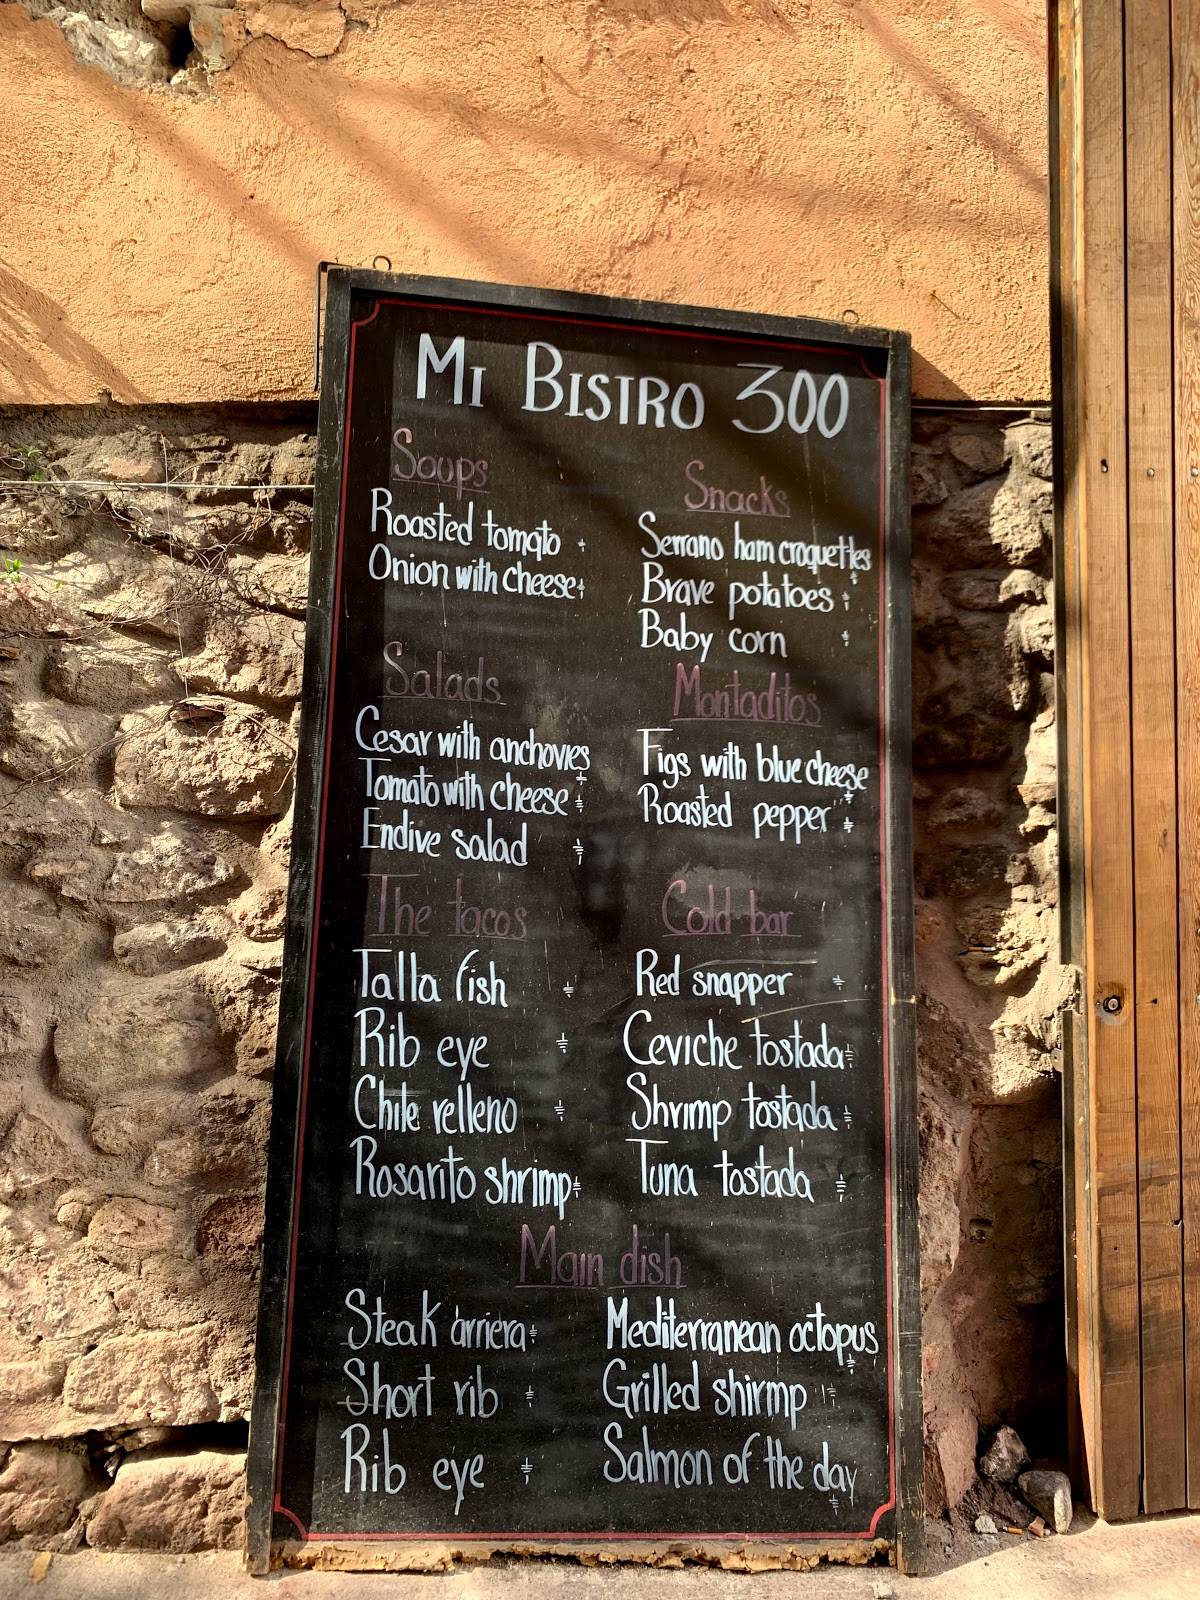 Mi Bistro 300
Soups
Roasted tomato
Onion with cheese
Salads
Cesar with anchovies
Tomato with cheese
Endive salad
The tacos
Talla fish
Rib eye
Chile relleno
Rosarito shrimp
Snacks
Serrano ham croquettes
Brave potatoes
Baby corn
Montaditos
Figs with blue cheese
Roasted pepper
Cold bar
Red snapper
Ceviche tostada
Shrimp tostada
Tuna tostada
Main dish
Steak arriera
Short rib
Rib eye
Mediterranean octopus
Grilled shirmp
Salmon of the day